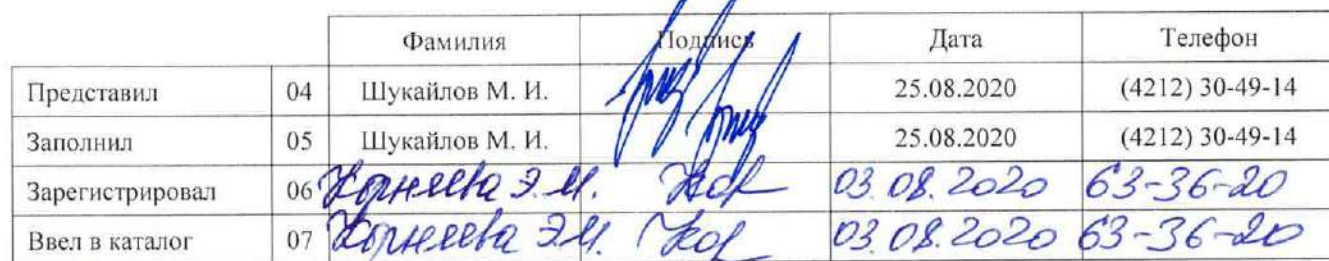 Фамилия Подпись Дата Телефон
Представил 04 Шукайлов М. И. 25.08.2020 (4212) 30-49-14
Заполнил 05 Шукайлов М. И. 25.08.2020 (4212) 30-49-14
Зарегистрировал 06 Корнеева Э.М. Кор 03.08.2020 63-36-20
Ввел в каталог 07 Корнеева Э.М. Кор 03.08.2020 63-36-20